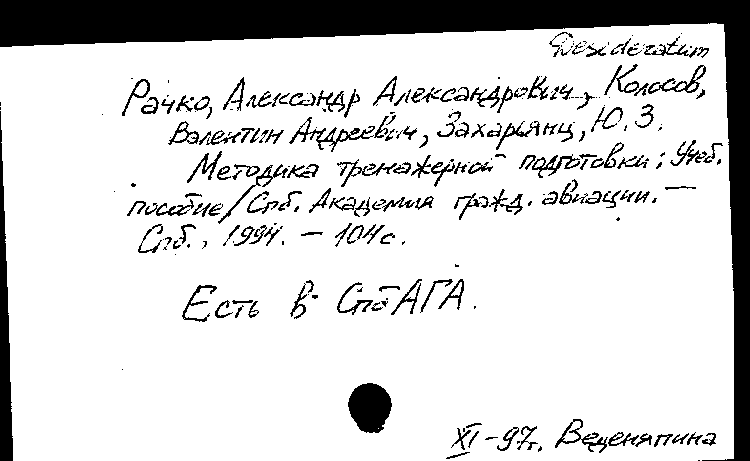 Desideratum
Рачко, Александр Александрович, Колосов,
Валентин Андреевич, Захарьянц, Ю. З.
Методика тренажерной подготовки: Учеб.
пособие/Спб. Академия гражд. авиации. —
Спб., 1994. — 104с.
Есть в СпбАГА.
XI-97г. Веденяпина